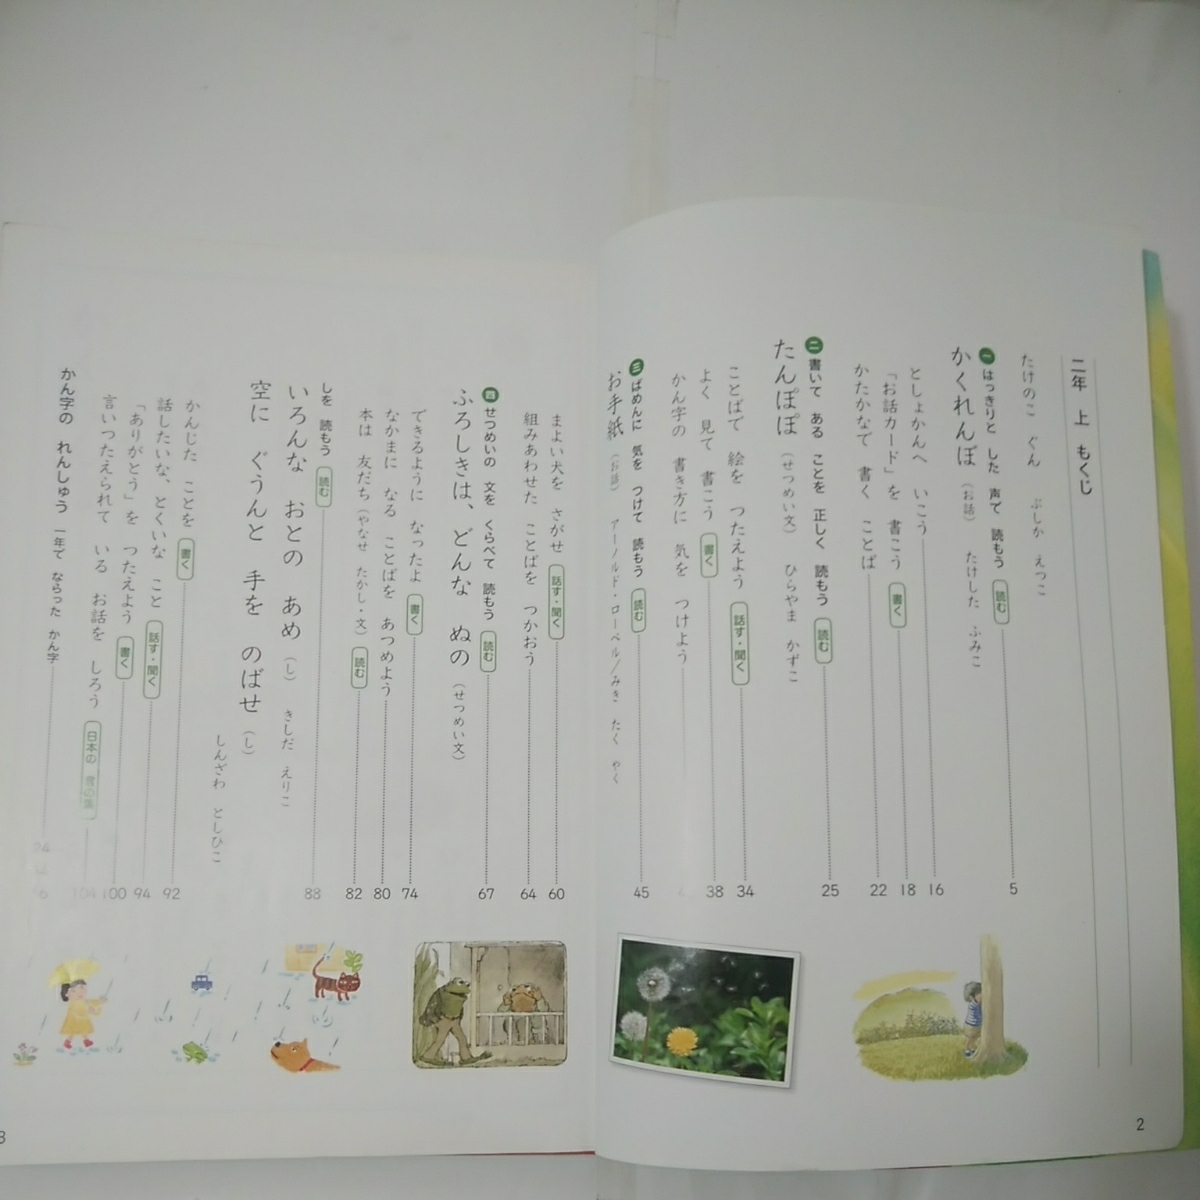 二年 上 もくじ
たけのこ ぐん ぶしか えつこ
一 はっきりと した 声で 読もう 読む 5
かくれんぼ (お話) たけした ふみこ
としょかんへ いこう 16
「お話カード」を 書こう 書く 18
かたかなで 書く ことば 22
二 書いて ある ことを 正しく 読もう 読む 25
たんぽぽ (せつめい文) ひらやま かずこ
ことばで 絵を つたえよう 話す・聞く 34
よく 見て 書こう 書く 38
かん字の 書き方に 気を つけよう
三 ばめんに 気を つけて 読もう 読む 45
お手紙 (お話) アーノルド・ローベル/みき たく やく
まよい犬を さがせ 話す・聞く 60
組みあわせた ことばを つかおう 64
四 せつめいの 文を くらべて 読もう 読む 67
ふろしきは、どんな ぬの (せつめい文)
できるように なったよ 書く 74
なかまに なる ことばを あつめよう 80
本は 友だち (やなせ たかし・文) 読む 82
しを 読もう 読む 88
いろんな おとの あめ (し) きしだ えりこ
空に ぐうんと 手を のばせ (し)
しんざわ としひこ
かんじた ことを 書く 92
話したいな、とくいな こと 話す・聞く 94
「ありがとう」を つたえよう 書く 100
言いつたえられて いる お話を しろう 日本の 104
かん字の れんしゅう 一年で ならった かん字
2